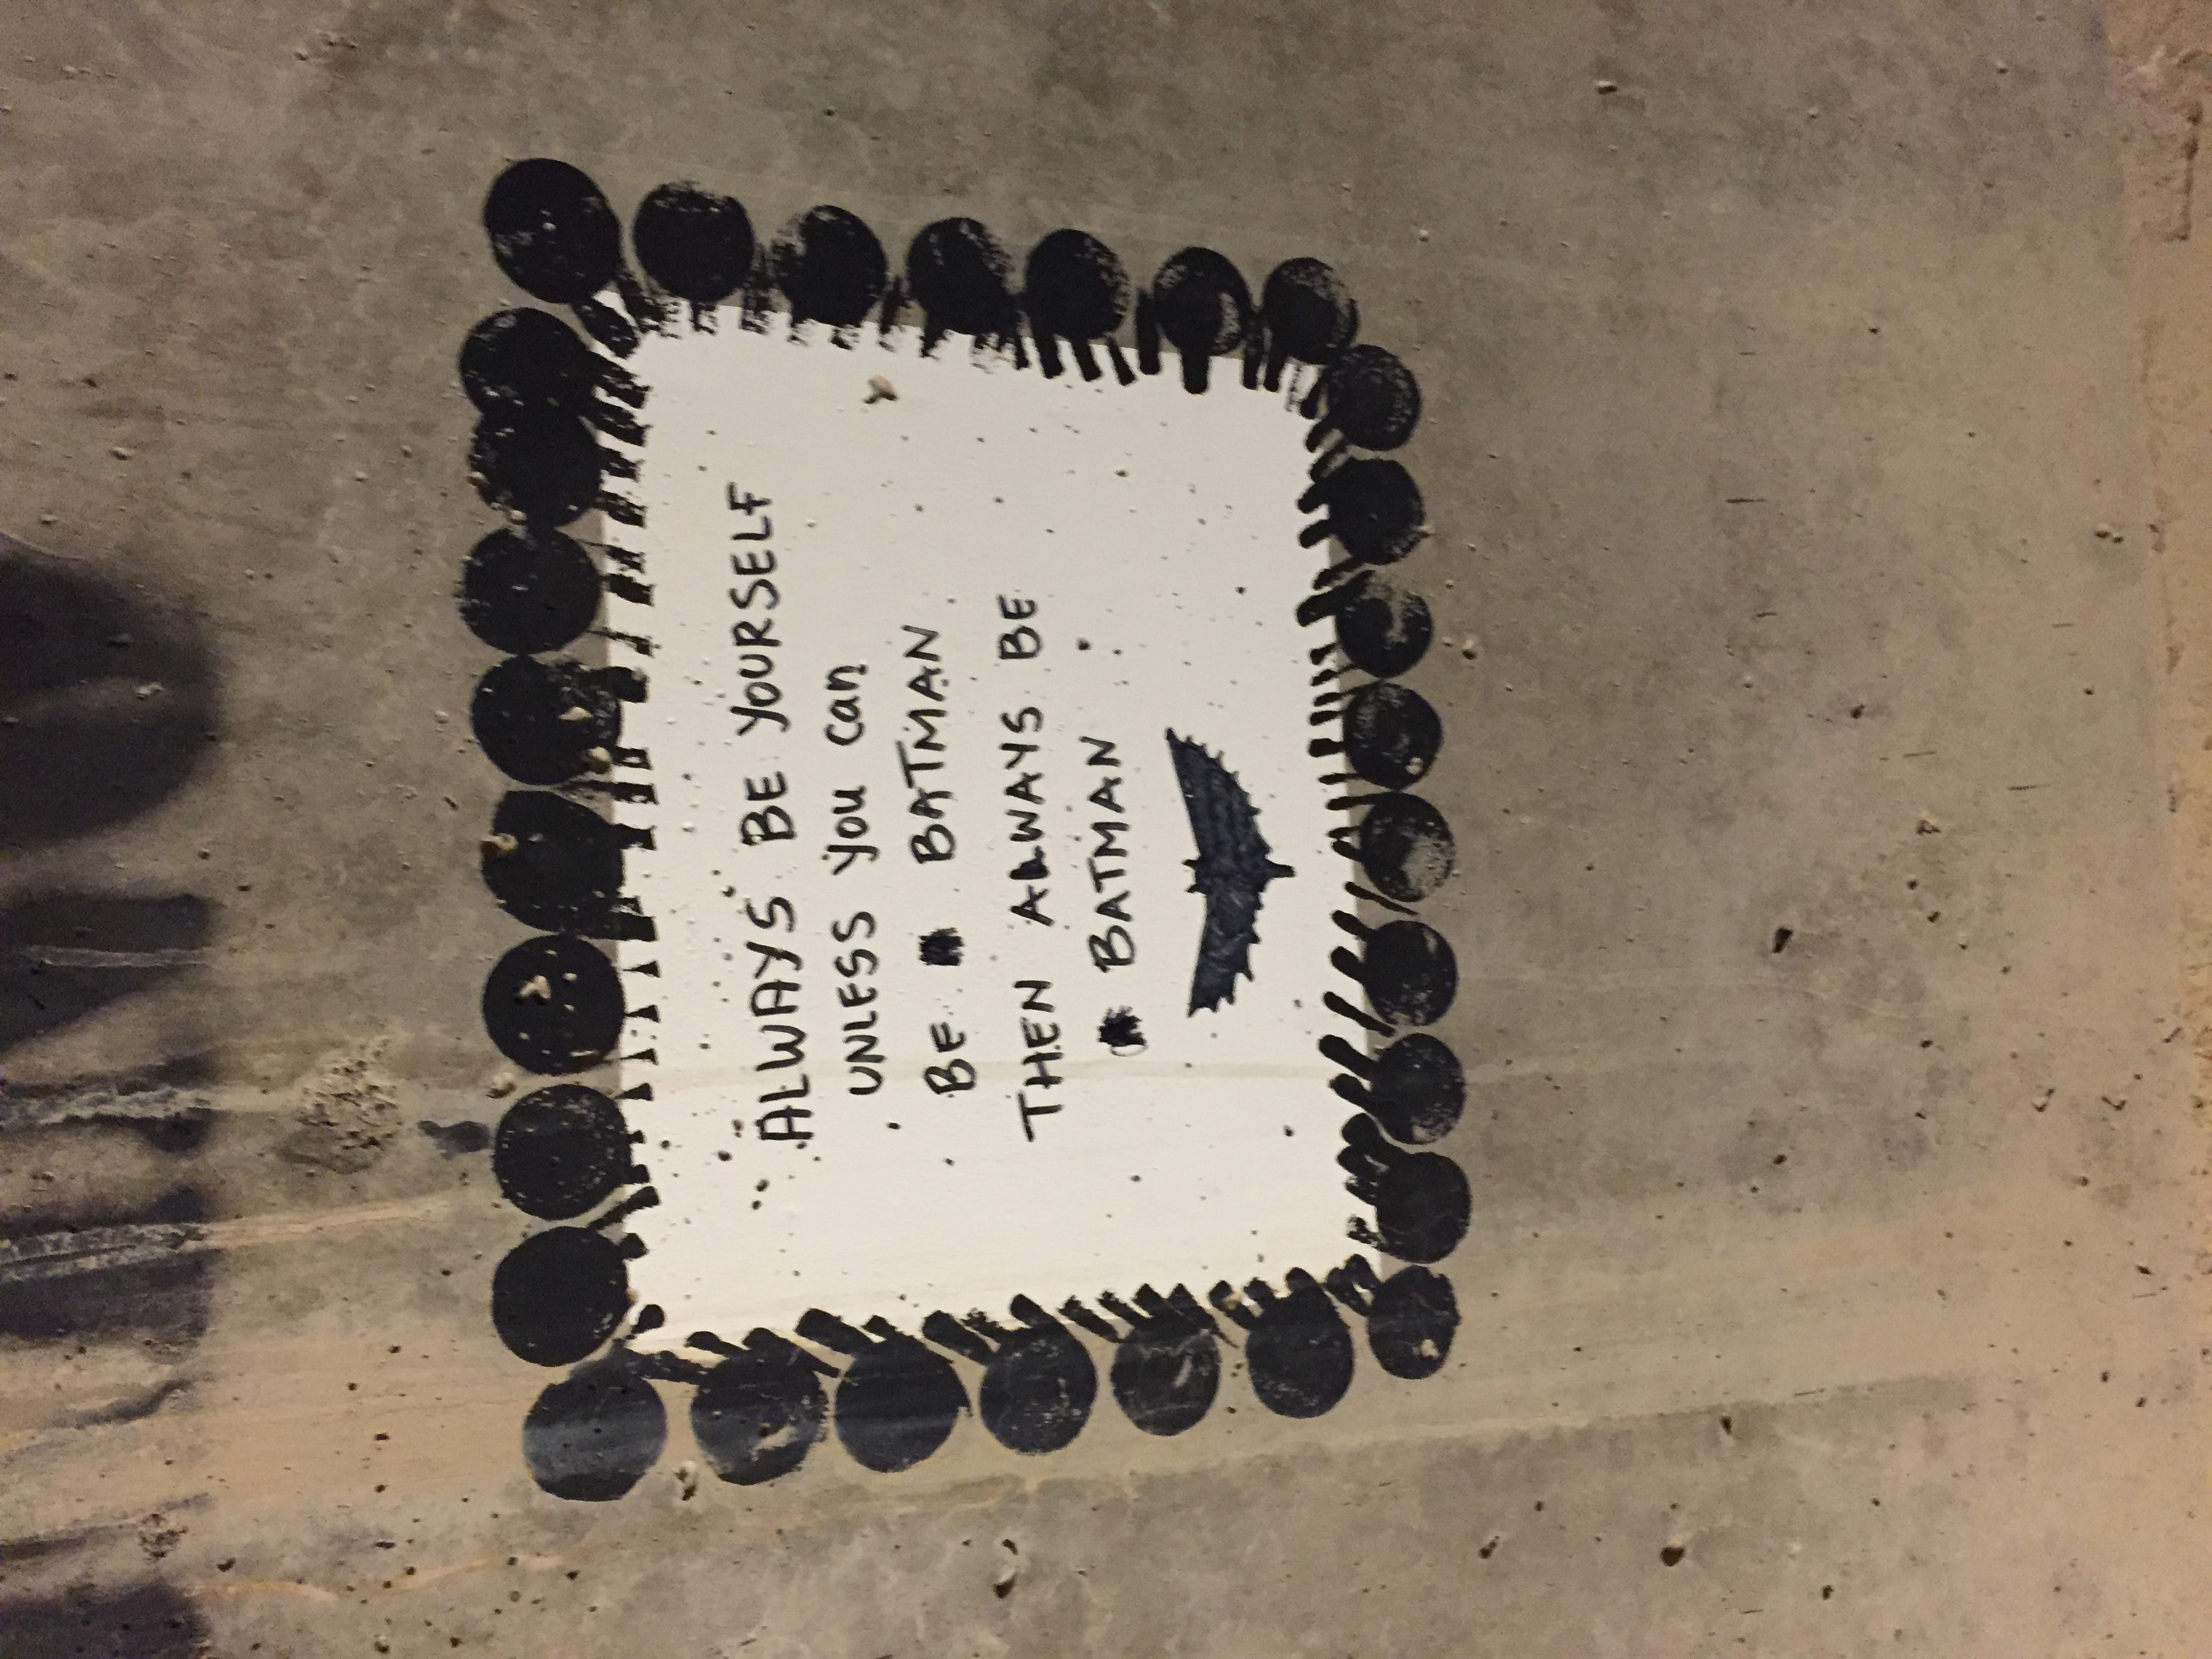 ALWAYS BE YOURSELF
UNLESS you can
BE BATMAN
THEN ALWAYS BE
BATMAN